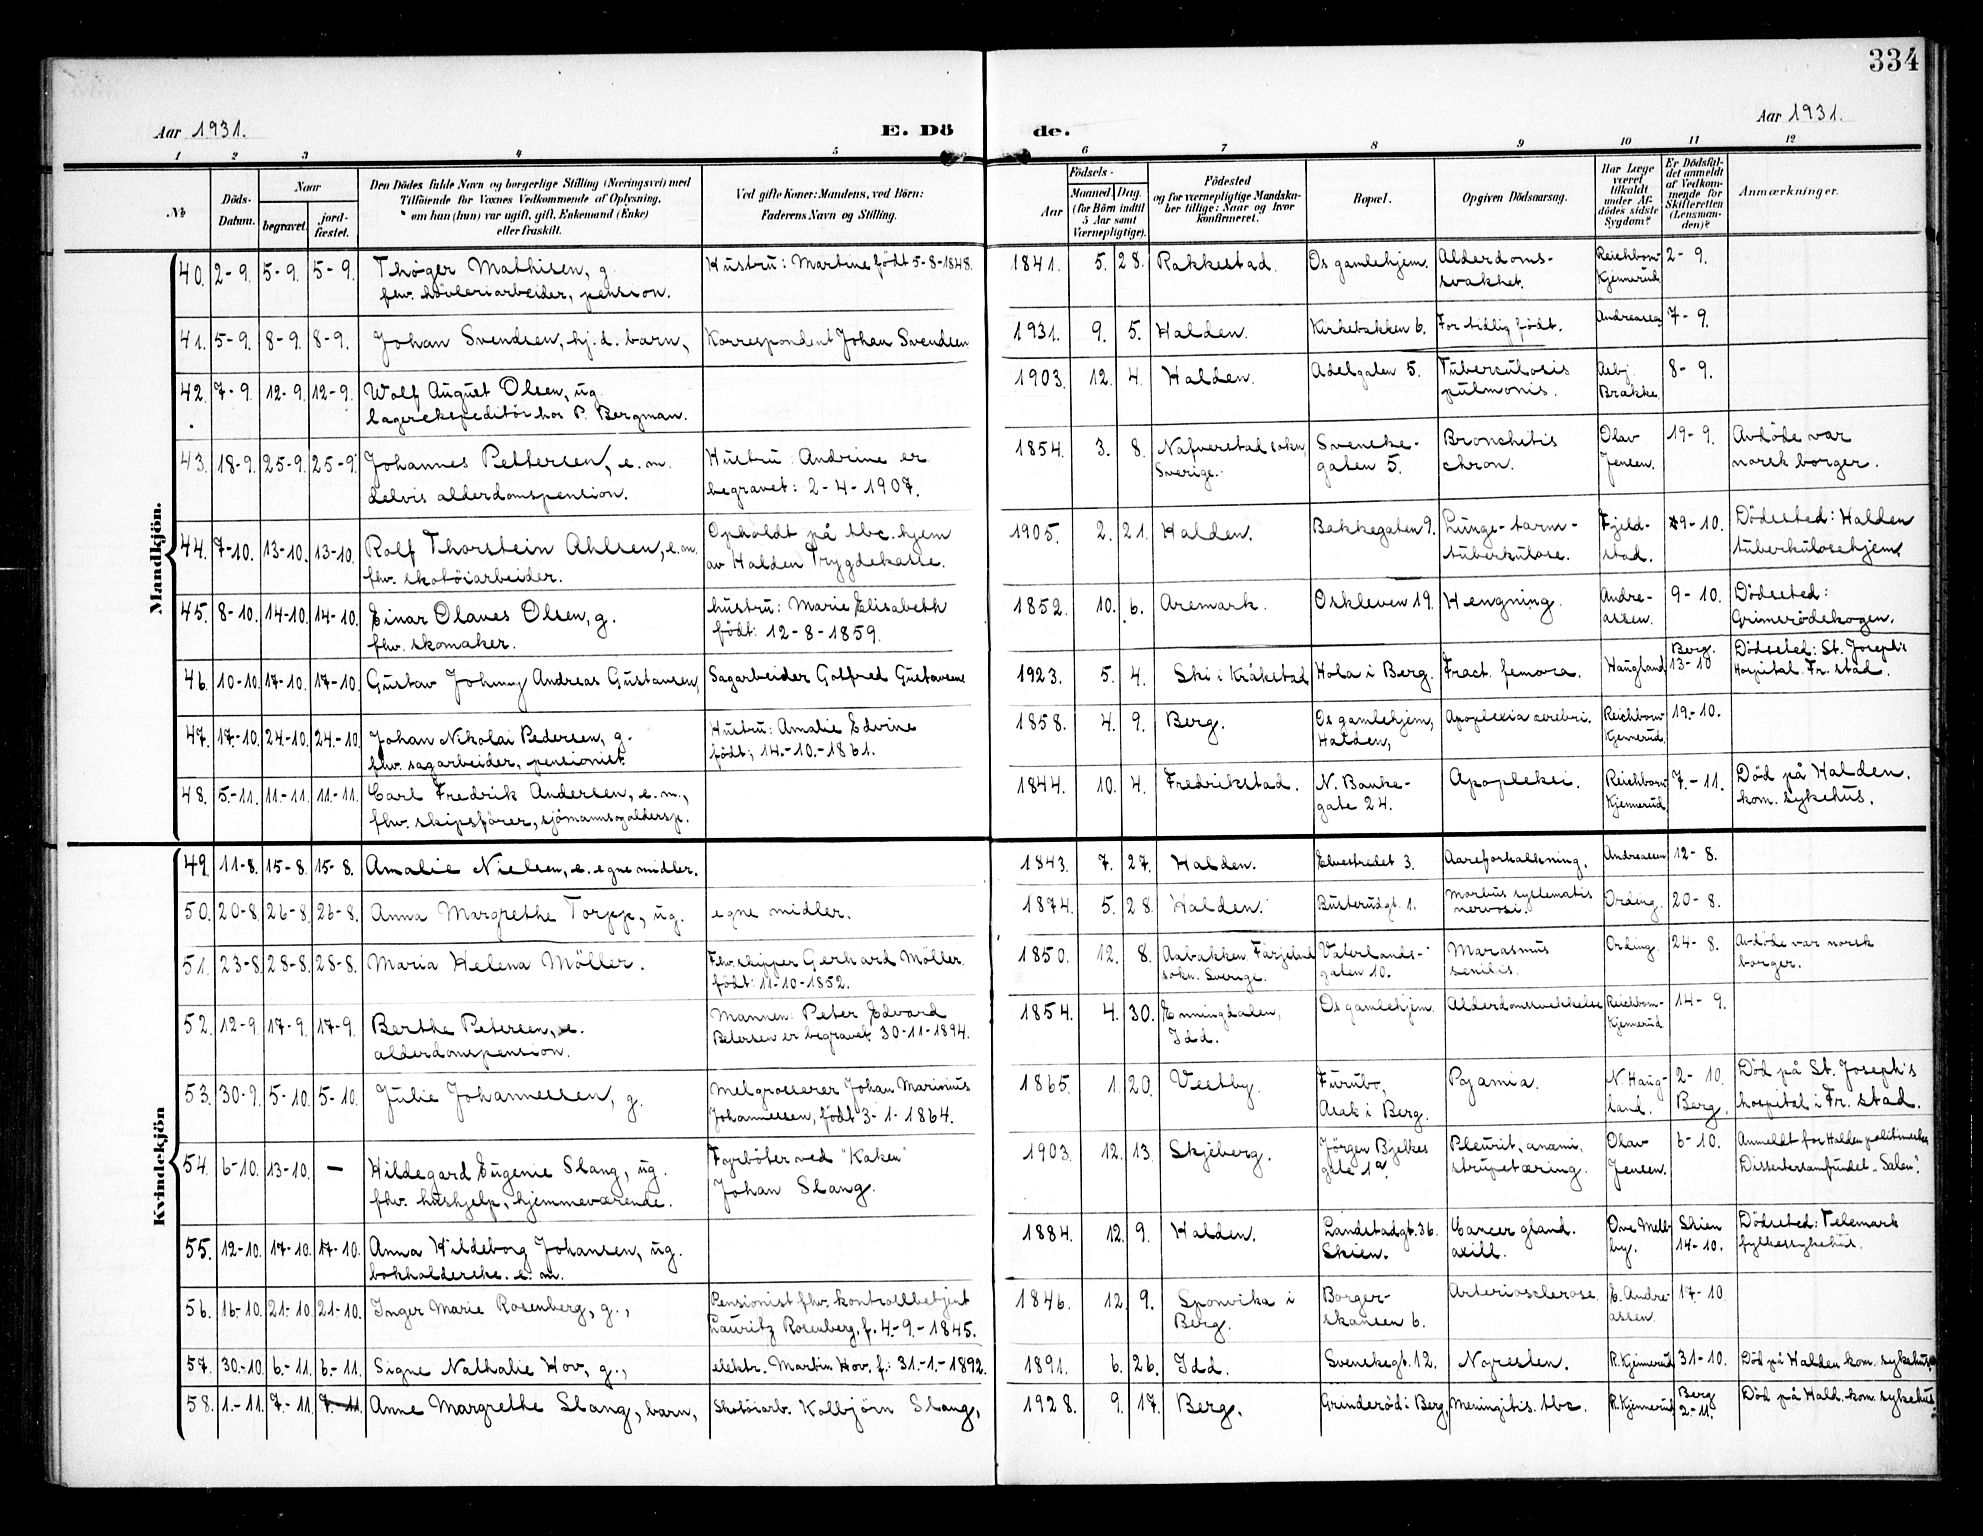 334
Aar 1931.
E. Dö de.
Aar 1931.
1 2 3 4 5 6 7 8 9 10 11 12
No
Döds-Datum.
Naar
begravet.
jord-fæstet.
Den Dödes fulde Navn og borgerlige Stilling (Næringsvei) med
Tilföiende for Voxnes Vedkommende af Oplysning,
om han (hun) var ugift, gift, Enkemand (Enke)
eller fraskilt.
Ved gifte Koner: Mandens, ved Börn:
Faderens Navn og Stilling.
Födsels-
Aar
Maaned. Dag.
(for Börn indtil
5 Aar samt
Værnepligtige).
Födested
og for værnepligtige Mandska-
ber tillige: Naar og hvor
konfirmeret.
Bopæl.
Opgiven Dödsaarsag.
Har Læge
været
tilkaldt
under Af-
dödes sidste
Sygdom?
Er Dödsfal-
det anmeldt
af Vedkom-
mende for
Skifteretten
(Lensman-
den)?
Anmærkninger.
Mandkjön.
40. 2-9. 5-9. 5-9. Thøger Mathisen, g. Hustru: Martine født 5-8-1848. 1841. 5. 28. Rakkestad. Os gamlehjem. Alderdoms- Reichborn 2-9.
fhv. høvleriarbeider, pension. svakhet. Kjennerud.
41. 5-9. 8-9. 8-9. Johan Svendsen, hj. d. barn, Korrespondent Johan Svendsen 1931. 9. 5. Halden. Kirkebakken 6. For tidlig født. Andreasen 7-9.
42. 7-9. 12-9. 12-9. Wolf August Olsen, ug. 1903. 12. 4. Halden. Adelgaten 5. Tuberculosis Asbj. 8-9.
lagerekspeditör hos P. Bergman. pulmonis. Brakke.
43. 18-9. 25-9. 25-9. Johannes Pettersen, e.m. Hustru: Andrine er 1854. 3. 8. Nafverstad sokn, Svenske- Bronchitis Olav 19-9. Avdøde var
delvis alderdomspension. begravet: 2-4-1907. Sverige. gaten 5. chron. Jensen. norsk borger.
44. 7-10. 13-10. 13-10. Rolf Thorstein Ahlsen, e.m. Opholdt på tbc. hjem 1905. 2. 21. Halden. Bakkegaten 9. Lunge-tarm- Fjeld- 9-10. Dødssted: Halden
fhv. skotöiarbeider. av Halden Trygdekasse. tuberkulose. stad. tuberkulosehjem.
45. 8-10. 14-10. 14-10. Einar Olaves Olsen, g. hustru: Marie Elisabeth 1852. 10. 6. Aremark. Oskleven 19. Hengning. Andre- 9-10. Dödssted:
fhv. skomaker. født: 12-8-1859. assen. Grimsrödskogen.
46. 10-10. 17-10. 17-10. Gustav Johnny Andreas Gustavsen, Sagarbeider Gotfred Gustavsens 1923. 5. 4. Ski i Kråkstad Hola i Berg. Fract. femora. Haugland Berg. 13-10 Dödssted: St. Joseph's
Hospital. Fr.stad.
47. 17.-10. 24.-10. 24.-10. Johan Nikolai Pedersen, g. Hustru: Amalie Edvine 1858. 4. 9. Berg. Os gamlehjem, Apoplexia cerebri. Reichborn 19.-10.
fhv. sagarbeider, pensionist. født; 14.-10.-1861. Halden, Kjennerud.
48. 5.-11. 11.-11. 11.-11. Carl Fredrik Andersen, e.m., 1844. 10. 4. Fredrikstad. N. Banke- Apopleksi. Reichborn 7.-11. Död på Halden.
fhv. skipsförer, sjömannsogaldersp. gate 24. Kjennerud kom. sykehus.
Kvindekjön
49. 11-8. 15-8. 15-8. Amalie Nielsen, e. egne midler. 1843. 7. 27. Halden. Elvestredet 3. Aareforkalkning. Andreassen 12-8.
50. 20-8. 26-8. 26-8. Anna Margrethe Torpp, ug. egne midler. 1874. 5. 28. Halden. Busterudgt. 1. Morbus systematis Ording. 20-8.
nervosi.
51. 23-8. 28-8. 28-8. Maria Helena Möller. Fhv. skipper Gerhard Möller. 1850. 12. 8. Vaterlands- Marasmus Ording. 24-8. Avdöde var norsk
født: 11-10-1852. sokn. Sverige. gaten 10. senilis. borger.
52. 12-9. 17-9. 17-9. Berthe Petersen, e. Mannen: Peter Edvard 1854. 4. 30. Enningdalen, Os gamlehjem. Alderdomssvekkelse Reichborn- 14-9.
alderdomspension. Petersen er begravet 30-11-1894. Idd. Kjennerud
53. 30-9. 5-10. 5-10. Julie Johannessen, g. Melgrosserer Johan Marinius 1865. 1. 20. Vestby. Furubo, Pyæmia. N. Haug- 2-10. Död på St. Joseph's
Johannessen, født 3-1-1864. Asak i Berg. land. Berg. hospital i Fr.stad.
54. 6-10. 13-10. — Hildegard Eugenie Slang, ug. Fyrböter ved "Kaken" 1903. 12. 13. Skjeberg. Jörgen Bjelkes Pleurit, anæmi, Olav 6-10. Anmeldt for Halden politimester
fhv. hushjelp, hjemmeværende. Johan Slang. gate 1a strupetæring. Jensen. Dissentersamfundet „Salen".
55. 12-10. 17-10. 17-10. Anna Hildeborg Johansen, ug. 1884. 12. 9. Halden. Landstadgt. 36. Cancer gland. One Mell- Skien Dödssted: Telemark
bokholderske. e.m. Skien. axill. by. 14-10. fylkessykehus.
56. 16-10. 21-10. 21-10. Inger Marie Rosenberg, g., Pensionist fhv. kontrollbetjent 1846. 12. 9. Sponvika i Borger- Arteriosclerose. C. Andre- 17-10.
Lauritz Rosenberg, f. 4.-9.-1845. Berg. skansen 6. assen.
57. 30.-10. 6.-11. 6.-11. Signe Nathalie Hov, g., elektr. Martin Hov. f.: 31.-1.-1892. 1891. 6. 26. Idd. Svenskegt. 12. Nyresten. R. Kjennerud 31-10. Död på Halden kom. sykehus.
58. 1.-11. 7.-11. 7.-11. Anne Margrethe Slang, barn, Skotöiarb. Kolbjörn Slang, 1928. 9. 17. Berg. Grinderöd i Berg, Meningitis. tbc. R. Kjennerud Berg 2.-11. Död på Hald. kom. sykehus.